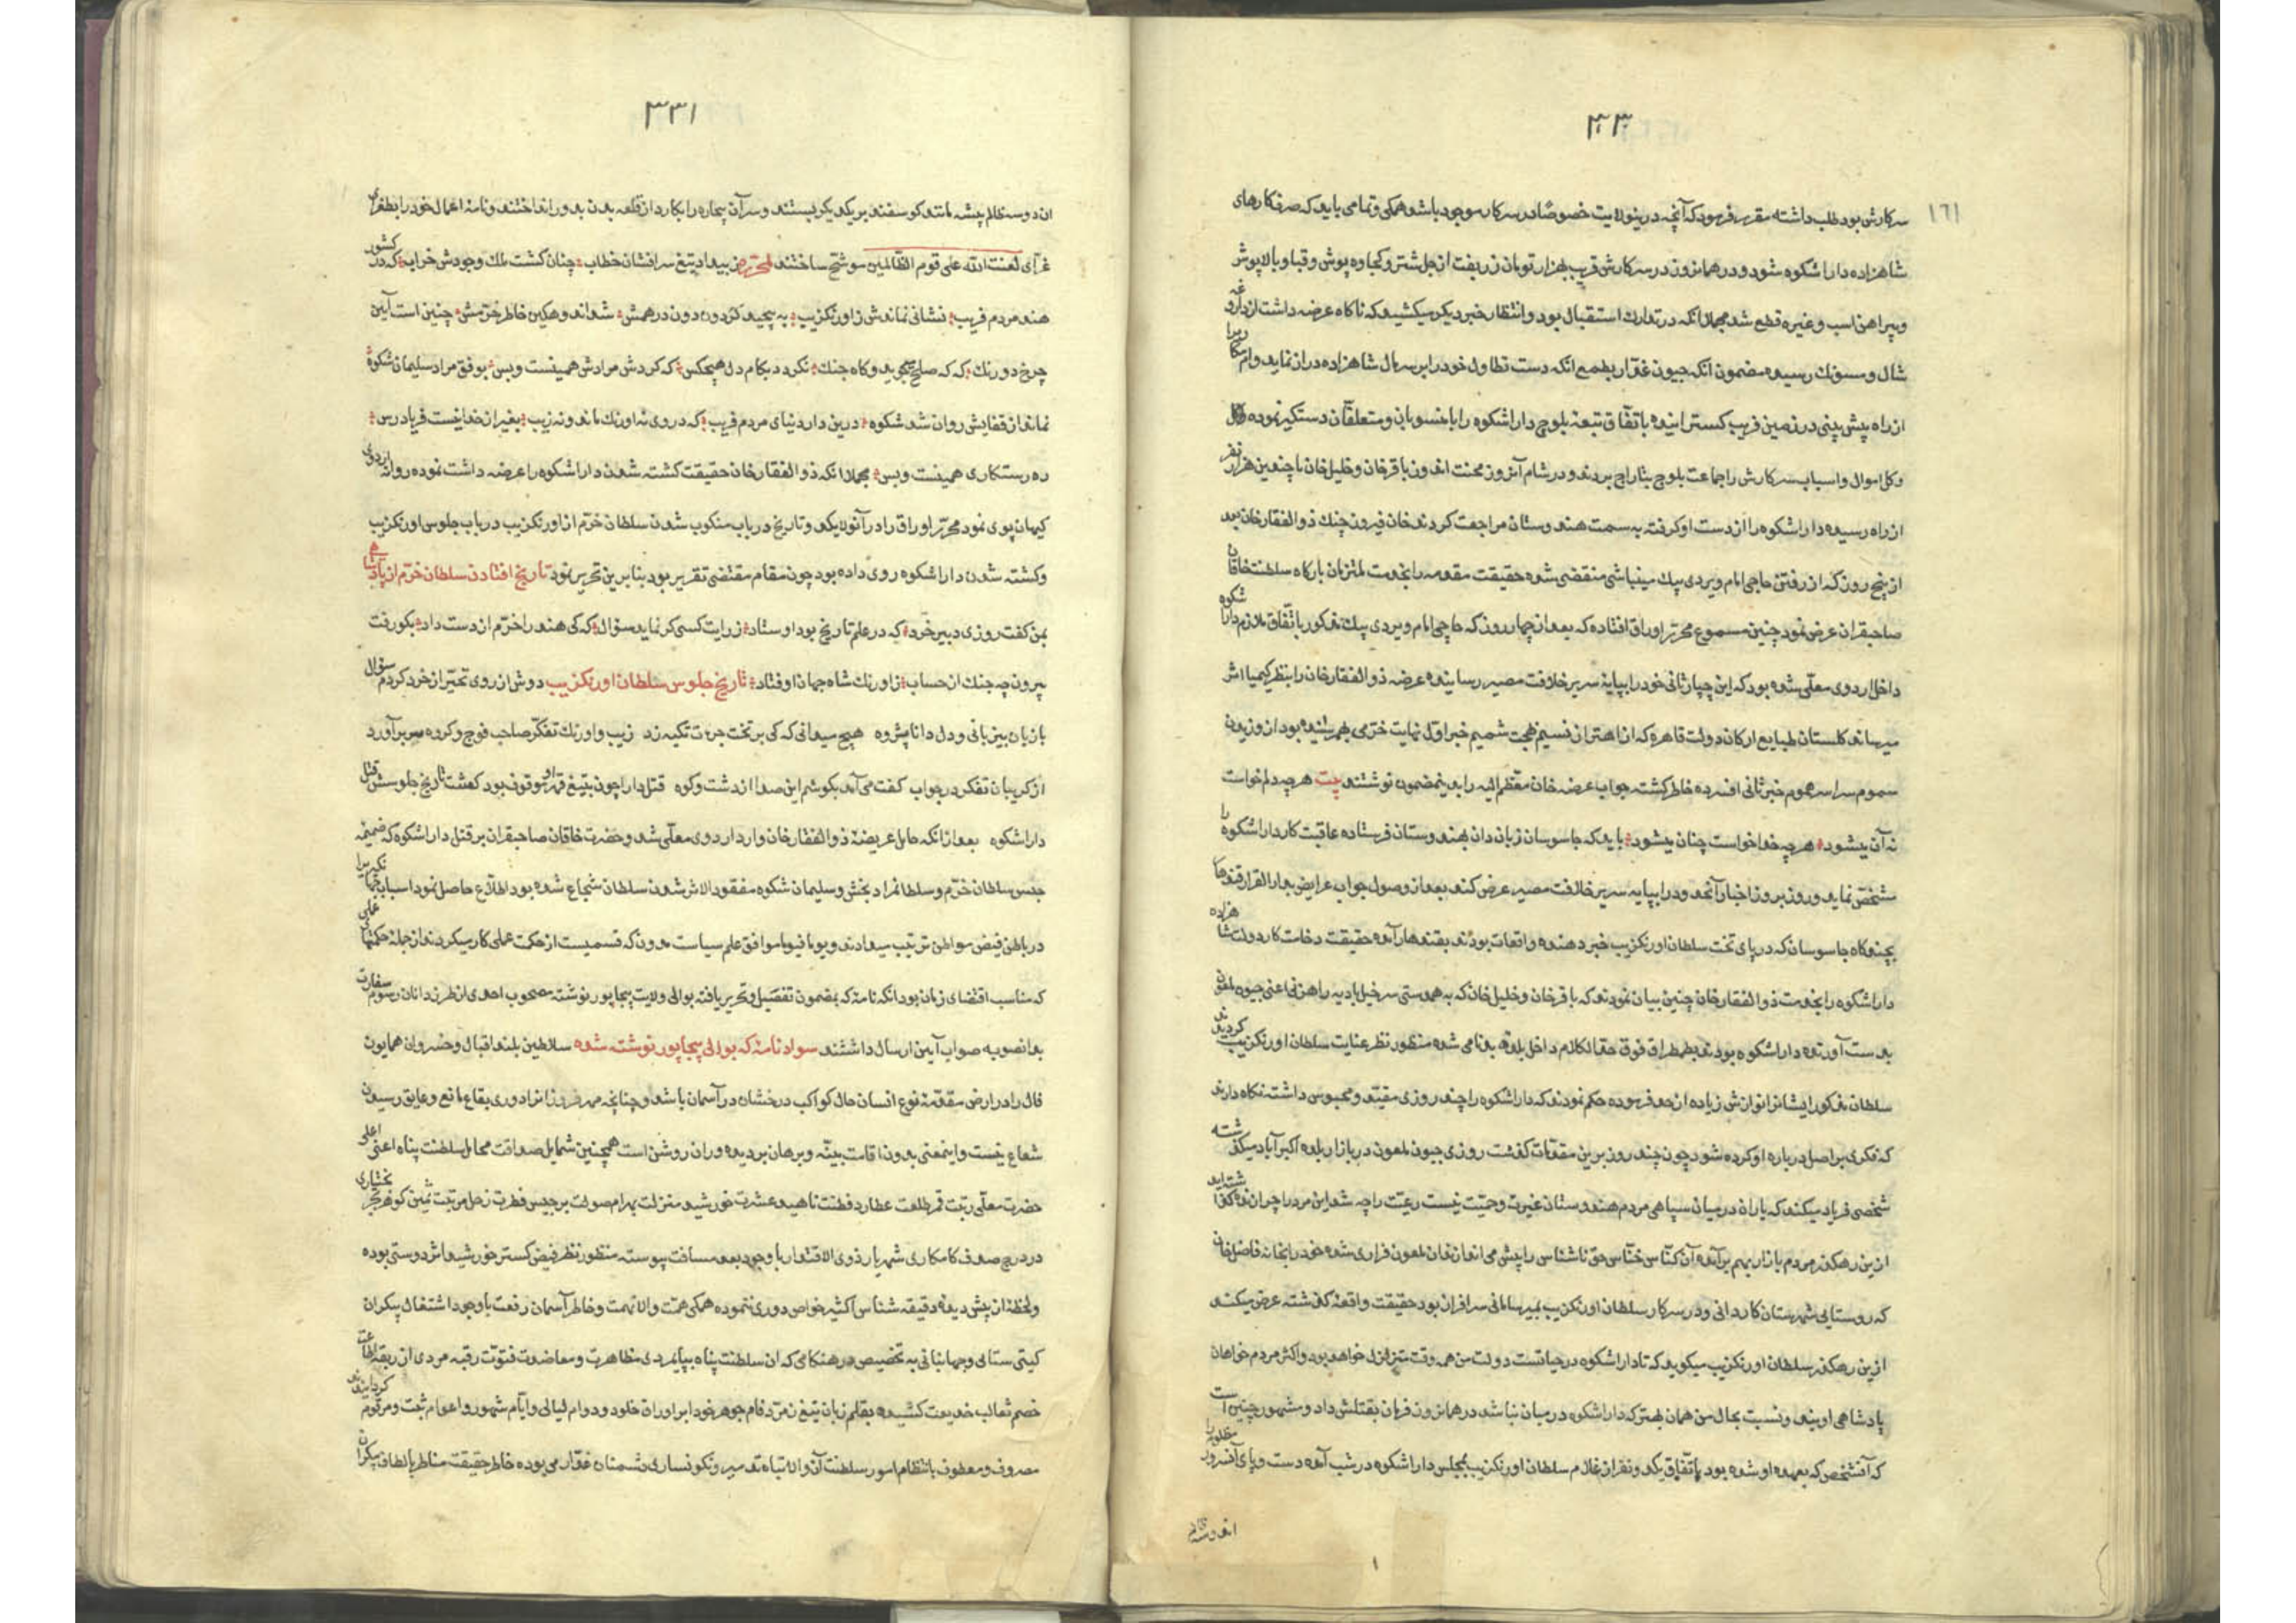 ۳۳۰
۱۶۱
سرکارش بود طلب داشته مقرر فرمود که آنچه درینولایت خصوصا در سرکار موجود باشد همکی و تمامی باید که صرف کارهای
شاهزاده دارا شکوه شود و در همانروز در سرکارش قریب بهزار تومان زربفت از جل شتر و کجاوه پوش و قبا و بالاپوش
و پیراهن اسب و غیره قطع شد مجملا انکه در تدارك استقبال بود و انتظار خبر دیکر میکشید که ناکاه عرضه داشت از داروغه
شال و مسونك رسید مضمون انکه جیون غدار بطمع انکه دست تطاول خود را بر سر مال شاهزاده دراز نماید و
از راه پیش بینی در زمین فریب کسترانیده باتفاق تبعه بلوچ دارا شکوه را با منسوبان و متعلقان دستکیر نموده
و کل اموال و اسباب سرکارش را جماعت بلوچ بتاراج بردند و در شام آنروز محنت اندوز باقرخان و خلیل خان با چندین هزار نفر
از راه رسیده دارا شکوه را از دست او کرفته به سمت هندوستان مراجعت کردند خان فیروز جنك ذوالفقار خان بعد
از پنج روز که از رفتن حاجی امام ویردی بیك مینباشی منقضی شده حقیقت مقدمه را بخدمت ملتزمان بارکاه سلطنت خاقان
صاحبقران عرض نمود چنین مسموع محرر اوراق افتاده که بعد از چهار روز که حاجی امام ویردی بیك مذکور باتفاق ملازم دارا شکوه
داخل اردوی معلی شده بود که این چپار ثانی خود را بپایه سریر خلافت مصیر رسانیده عرضه ذوالفقار خان را بنظر کیمیا اثر
میرساند کلستان طبایع ارکان دولت قاهره که از اهتزاز نسیم بهجت شمیم خبر اول نهایت خرمی بهمرسانیده بود از وزیدن
سموم سراسر هموم خبر ثانی افسرده خاطر کشته جواب عرضه خان معظم الیه را بدینمضمون نوشتند بیت هر چه دلم خواست
نه آن میشود هر چه خدا خواست چنان میشود باید که جاسوسان زبان دان بهندوستان فرستاده عاقبت کار دارا شکوه را
مشخص نماید و روز بروز اخبار آنحدود را بپایه سریر خلافت مصیر عرض کند بعد از وصول جواب عرایض بدارالقرار قندهار
چندکاه جاسوسان که در پای تخت سلطان اورنکزیب خبر دهنده واقعات بودند بقندهار آمده حقیقت دخامت کار دولت شاهزاده
دارا شکوه را بخدمت ذوالفقار خان چنین بیان نمودند که باقرخان و خلیل خان که به همدستی سرخیل بادیه راهزنی اعنی جیون ملعون
بدست آورنده دارا شکوه بودند بطمطراق فوق حد الکلام داخل بلده بدنامی شده منظور نظر عنایت سلطان اورنکزیب کردیدند
سلطان مذکور ایشانرا نوازش زیاده از حد فرموده حکم نمودند که دارا شکوه را چند روزی مقید و محبوس داشته نکاه دارند
که فکری بر اصل درباره او کرده شود چون چند روز برین مقدمات کذشت روزی جیون ملعون در بازار بلده اکبرآباد میکذشته
شخصی فریاد میکند که یاران در میان سپاهی مردم هندوستان غیرت و حمیت نیست رعیت را چه شد این مرد را چرا زنده کذاشته اید
ازین رهکذر مردم بازار بهم برآمده آن کناس خناس حق ناشناس را پیش می اندازند آن ملعون فراری شده خود را بخانه فاضل خان
که روستایی شهرستان کاردانی و در سرکار سلطان اورنکزیب بمیرسامانی سرافراز بود حقیقت واقعه کذشته عرض میکند
ازین رهکذر سلطان اورنکزیب میکوید که تا دارا شکوه در حیاتست دولت من همه وقت متزلزل خواهد بود و اکثر مردم خواهان
پادشاهی اویند و نسبت بحال من همان بهتر که دارا شکوه در میان نباشد در همانروز فرمان بقتلش داد و مشهور چنین است
که آنشخص که بعهده او شده بود باتفاق یکدو نفر از غلام سلطان اورنکزیب بمجلس دارا شکوه در شب آمده دست و پای آنسرور مظلوم را
۳۳۱
ان دو سه ظالم پیشه مانند کوسفند بر یکدیکر بستند و سر آن بیچاره را بکارد از قلعه بدن بدور انداختند و نامه اعمال خود را بطغرای
غرای لعنت الله علی قوم الظالمین موشح ساختند لمحرره ز بیداد تیغ سر افشان خطاب چنان کشت ملك وجودش خراب که در کشور
هند مردم فریب نشانی نماندش ز اورنکزیب به پیچید کردون دون درهمش شد اندوهکین خاطر خرمش چنین است آیین
چرخ دو رنك که که صلح جوید و کاه جنك نکردد بکام دل هیچکس که کردش مرادش همینست و بس بوفق مراد سلیمان شکوه
نماند از قفایش روان شد شکوه درین دار دنیای مردم فریب که در وی نه اورنك ماند و نه زیب بغیر از خدا نیست فریادرس
ره رستکاری همینست و بس مجملا انکه ذوالفقار خان حقیقت کشته شدن دارا شکوه را عرضه داشت نموده روانه اردوی
کیهان پوی نمود محرر اوراق را در آنولا یکدو تاریخ در باب منکوب شدن سلطان خرم از اورنکزیب در باب جلوس اورنکزیب
و کشته شدن دارا شکوه روی داده بود چون مقام مقتضی تقریر بود بنابرین تحریر نمود تاریخ افتادن سلطان خرم از پادشاهی
بمن کفت روزی دبیر خرد که در علم تاریخ بود اوستاد زرایت کسی کر نماید سؤال که کی هند را خرم از دست داد بکو رفت
بیرون چه جنك از حساب ز اورنك شاه جهان اوفتاد تاریخ جلوس سلطان اورنکزیب دوش از روی تحیر از خرد کردم سؤال
با زبان بیزبانی و دل دانا پژوه هیچ میدانی که کی بر تخت جرات تکیه زد زیب و اورنك تفکر صاحب فوج و کروه سر برآورد
از کریبان تفکر در جواب کفت می آید بکوشم این صدا از دشت و کوه قتل دارا چون بتیغ قهر او موقوف بود کشت تاریخ جلوسش قتل
دارا شکوه بعد از انکه حامل عریضه ذوالفقار خان وارد اردوی معلی شد و حضرت خاقان صاحبقران بر قتل دارا شکوه که ضمیمه
حبس سلطان خرم و سلطانمراد بخش و سلیمان شکوه مفقود الاثر شدن سلطان شجاع شده بود اطلاع حاصل نمود اسباب جهانکیری را
در باطن فیض مواطن ترتیب میدادند و یوما فیوما موافق علم سیاست مدون که قسمیست از حکمت عملی کار میکردند از جمله حکمتهای عملی
که مناسب اقتضای زمان بود انکه نامه که بمضمون تفصیل و تحریر یافته بوالی ولایت بیجاپور نوشته مصحوب احدی از طرزدانان رسوم سفارت
بدانصوب صواب آیین ارسال داشتند سواد نامه که بوالی بیجاپور نوشته شده سلاطین بلند اقبال و خسروان همایون
فال را در ارض مقدمه نوع انسان حال کواکب درخشان در آسمان باشد و چنانچه مهر فروزانرا دوری بقاع مانع و عایق رسیدن
شعاع نیست و اینمعنی بدون اقامت بینه و برهان بر دیده وران روشن است همچنین شمایل صداقت محایل سلطنت پناه اعنی اعلی
حضرت معلی رتبت قمر طلعت عطارد فطنت ناهید عشرت خورشید منزلت بهرام صولت برجیس فطرت زحل مرتبت ثمین کوهر بحر بختیاری
در درج صدف کامکاری شهریار ذوی الاقتدار با وجود بعد مسافت پیوسته منظور نظر فیض کستر خورشید اثر دوستی بوده
و لحظه از پیش دیده دقیقه شناس اکثیر خواص دوری ننموده همکی همت والا نهمت و خاطر آسمان رفعت با وجود اشتغال بیکران
کیتی ستانی و جهانبانی به تخصیص در هنکامی که ان سلطنت پناه بپایمردی مظاهرت و معاضدت فتوت رقبه مردی از ربقه اطاعت
خصم ثعالب خدیعت کشیده بقلم زبان تیغ زمرد فام جوهر خود را بر اوراق خلود و دوام لیالی و ایام شهور و اعوام ثبت و مرقوم کردانیدند
مصروف و معطوف بانتظام امور سلطنت آن والا تباه تدمیر و نکونساری دشمنان غدار می بوده خاطر حقیقت مناظر بالطاف بیکران